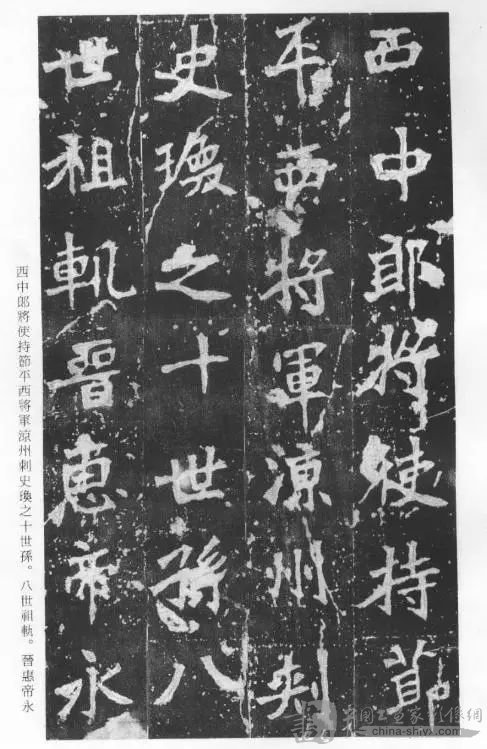 西中郎將使持節
平西將軍涼州刺
史瓊之十世孫八
世祖軌晉惠帝永
西中郎將使持節平西將軍涼州刺史瓊之十世孫。八世祖軌。晉惠帝永
china-shyx.com